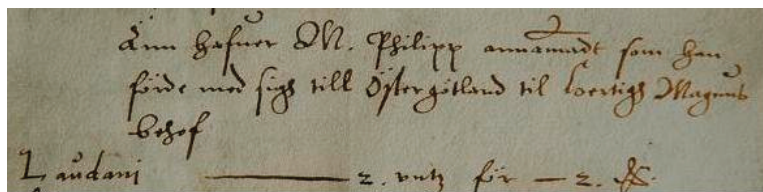 Änn hafuer M. Philipp annamadt som han
förde med sigh till Östergötland til hertigh Magnus
behof
Laudani ——— 2. untz för — 2.